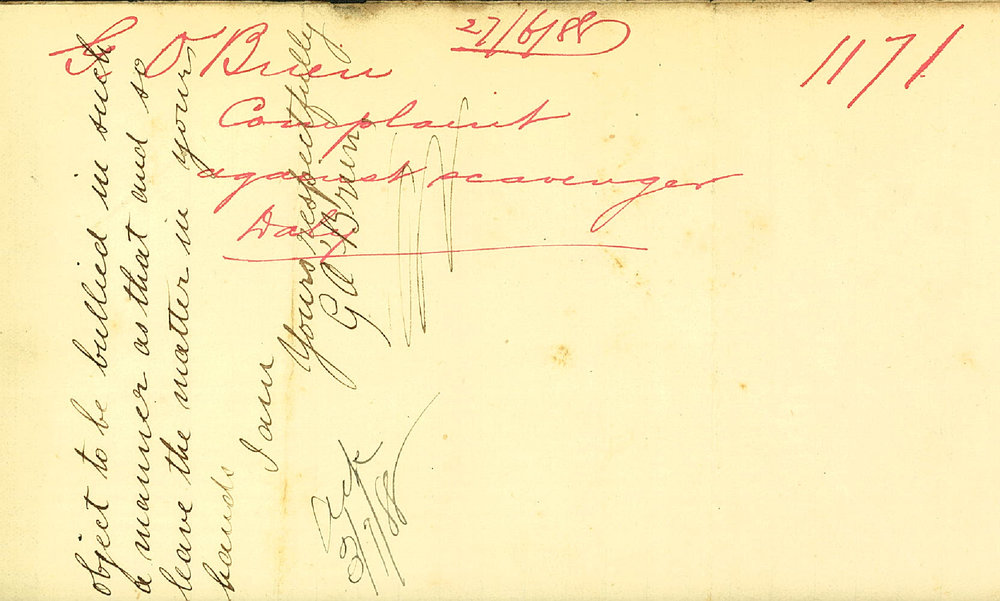 27/6/88
G O'Brien
1171
Complaint
against scavenger
Daly
object to be bullied in such
a manner as that and so
leave the matter in yours
hands
I am
Yours respectfully
G O'Brien
Ack
3/7/88